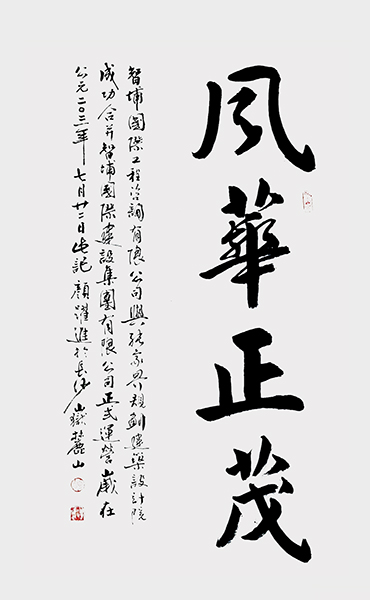 风華正茂
智埔國際工程咨詢有限公司與張家界規劃建築設計院
成功合并智埔國際建設集團有限公司正式運營歲在
公元二〇二一年七月廿二日此記顏躍進於長沙嶽麓山